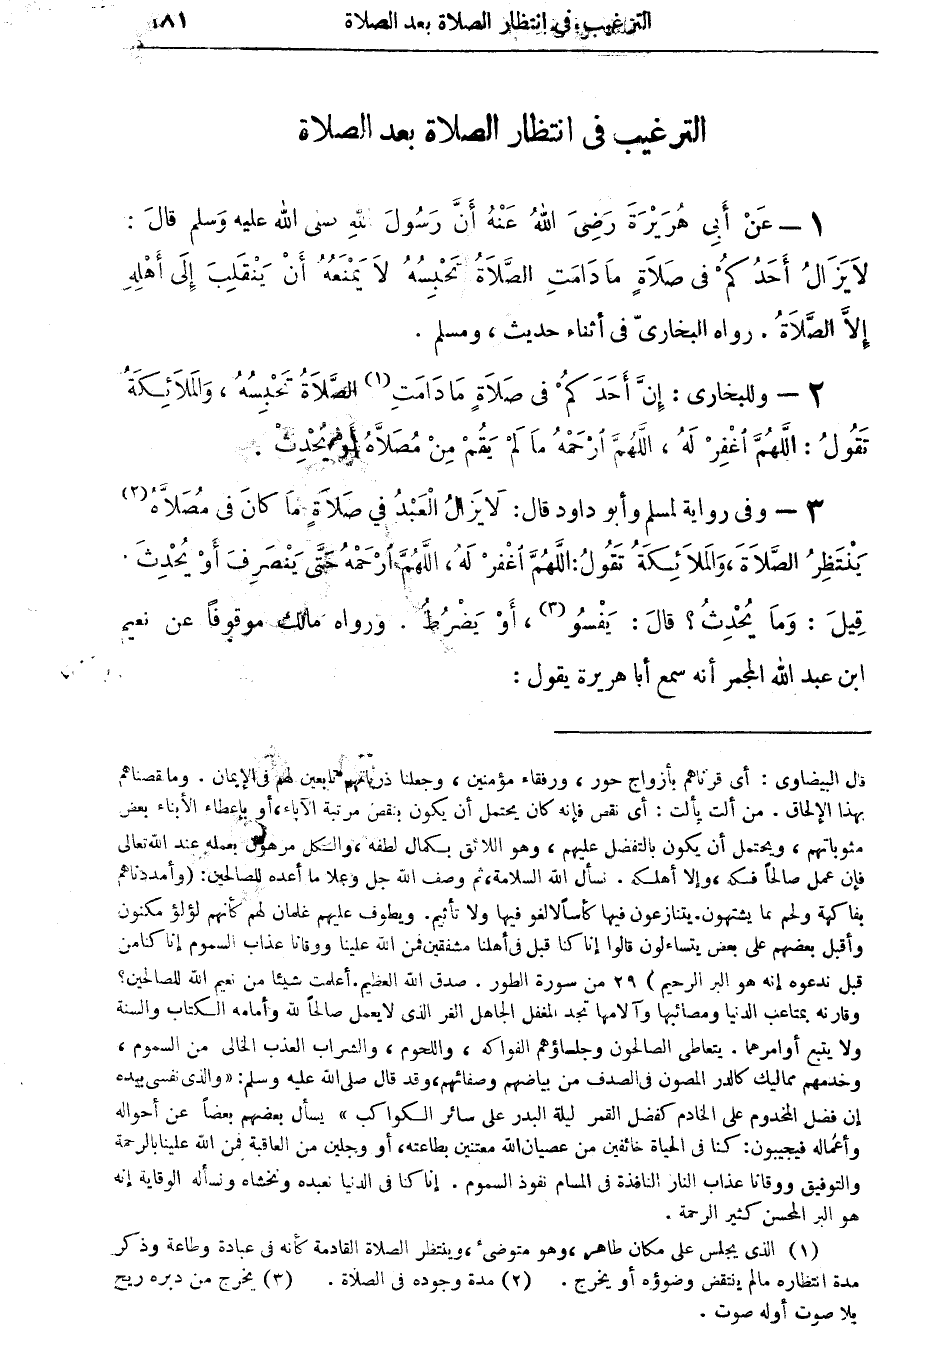 الترغيب في انتظار الصلاة بعد الصلاة ٢٨١
الترغيب فى انتظار الصلاة بعد الصلاة
١ – عَنْ أَبِي هُرَيْرَةَ رَضِىَ اللهُ عَنْهُ أَنَّ رَسُولَ اللهِ صلى الله عليه وَسلم قالَ :
لاَيَزَالُ أَحَدُكمُ فى صَلاَةٍ مادَامَتِ الصَّلاَةُ تَحْبِسُهُ لاَ يَمْنَعُهُ أَنْ يَنْقَلِبَ إِلَى أَهْلِهِ
إِلاَّ الصَّلاَةُ . رواه البخارىّ فى أثناء حديث ، ومسلم .
٢ – وللبخارى : إِنَّ أَحَدَكمُ فى صَلاَةٍ مادَامَتِ (١) الصَّلاَةُ تَحْبِسُهُ ، وَالمَلاَئِكَةُ
تَقُولُ : اللَّهُمَّ اغْفِرْ لَهُ ، اللَّهُمَّ ارْحَمْهُ مالَمْ يَقُمْ مِنْ مُصَلاَّهُ أَوْ يُحْدِثْ .
٣ – وفى رواية لمسلم وأبو داود قال: لاَيزَالُ الْعَبْدُ فِي صَلاَةٍ ماَ كانَ فى مُصَلاَّهُ (٢)
يَنْتَظِرُ الصَّلاَةَ ، وَالمَلاَئِكَةُ تَقُولُ: اللَّهُمَّ اغْفِرْ لَهُ ، اللَّهُمَّ ارْحَمْهُ حَتَّى يَنْصَرِفَ أَوْ يُحْدِثَ .
قِيلَ : وَماَ يُحْدِثُ ؟ قالَ : يَفْسُو (٣) ، أَوْ يَضْرُطُ . ورواه مالك موقوفاً عن نعيم
ابن عبد الله المجمر أنه سمع أبا هريرة يقول :
قال البيضاوى : أى قرناهم بأزواج حور ، ورفقاء مؤمنين ، وجعلنا ذرياتهم تابعين لهم فى الإيمان . وما نقصناهم
بهذا الإلحاق . من ألت يألت : أى نقص فإنه كان يحتمل أن يكون بنقص مرتبة الآباء ، أو بإعطاء الأبناء بعض
مثوباتهم ، ويحتمل أن يكون بالتفضل عليهم ، وهو اللائق بكمال لطفه ، والكل مرهون بعمله عند الله تعالى
فإن عمل صالحاً فكه ، وإلا أهلكه . نسأل الله السلامة ، ثم وصف الله جل وعلا ما أعده للصالحين: (وأمددناهم
بفاكهة ولحم مما يشتهون. يتنازعون فيها كأساً لالغو فيها ولا تأثيم. ويطوف عليهم غلمان لهم كأنهم لؤلؤ مكنون
وأقبل بعضهم على بعض يتساءلون قالوا إنا كنا قبل فى أهلنا مشفقين فمن الله علينا ووقانا عذاب السموم إنا كنا من
قبل ندعوه إنه هو البر الرحيم ) ٢٩ من سورة الطور . صدق الله العظيم. أعلمت شيئا من نعيم الله للصالحين؟
وقارنه بمتاعب الدنيا ومصائبها وآلامها تجد المغفل الجاهل الغر الذى لايعمل صالحاً لله وأمامه الكتاب والسنة
ولا يتبع أوامرهما . يتعاطى الصالحون وجلساؤهم الفواكه ، واللحوم ، والشراب العذب الخالى من السموم ،
وخدمهم مماليك كالدر المصون فى الصدف من بياضهم وصفائهم ، وقد قال صلى الله عليه وسلم: « والذى نفسى بيده
إن فضل المخدوم على الخادم كفضل القمر ليلة البدر على سائر الكواكب » يسأل بعضهم بعضاً عن أحواله
وأعماله فيجيبون: كنا فى الحياة خائفين من عصيان الله معتنين بطاعته، أو وجلين من العاقبة فمن الله علينا بالرحمة
والتوفيق ووقانا عذاب النار النافذة فى المسام نفوذ السموم . إنا كنا فى الدنيا نعبده ونخشاه ونسأله الوقاية إنه
هو البر المحسن كثير الرحمة .
(١) الذى يجلس على مكان طاهر ، وهو متوضىء ، وينتظر الصلاة القادمة كأنه فى عبادة وطاعة وذكر
مدة انتظاره مالم ينتقض وضوؤه أو يخرج . (٢) مدة وجوده فى الصلاة . (٣) يخرج من دبره ريح
بلا صوت أوله صوت .